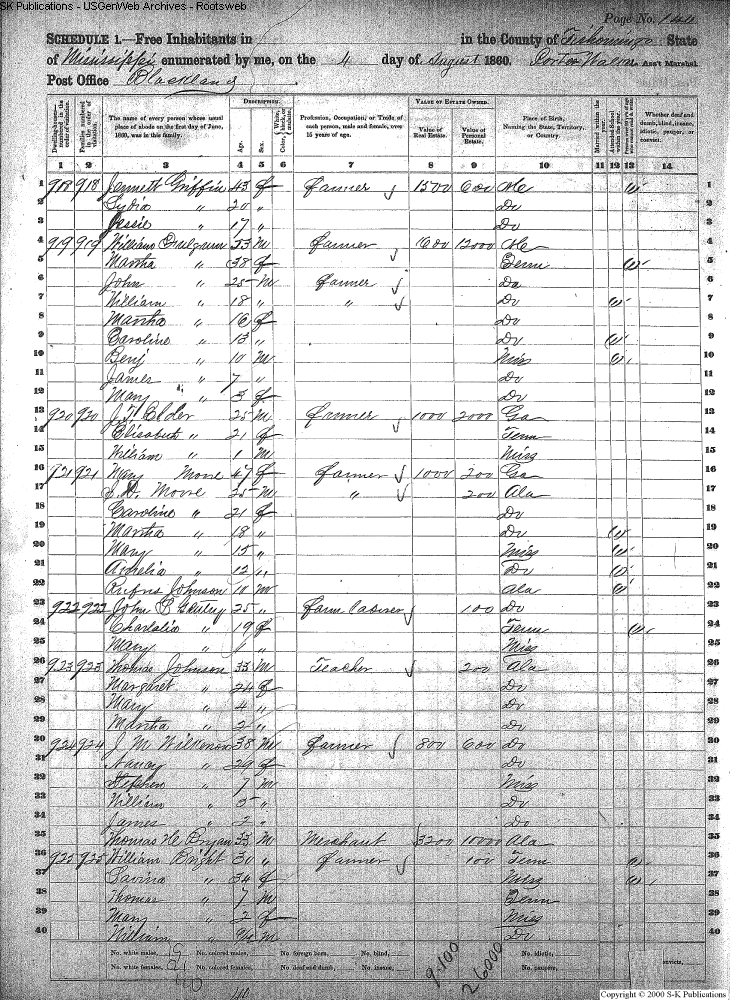 SK Publications - USGenWeb Archives - Rootsweb
Page No. 144
SCHEDULE 1.—Free Inhabitants in in the County of Tishomingo State
of Mississippi enumerated by me, on the 4 day of August 1860. Ass't Marshal.
Post Office Blackland
Dwelling-houses—numbered in the order of visitation.
Families numbered in the order of visitation.
The name of every person whose usual place of abode on the first day of June, 1860, was in this family.
DESCRIPTION.
Age.
Sex.
Color, White, black, or mulatto.
Profession, Occupation, or Trade of each person, male and female, over 15 years of age.
VALUE OF ESTATE OWNED.
Value of Real Estate.
Value of Personal Estate.
Place of Birth, Naming the State, Territory, or Country.
Married within the year.
Attended School within the year.
Whether deaf and dumb, blind, insane, idiotic, pauper, or convict.
1 2 3 4 5 6 7 8 9 10 11 12 13 14
1 918 918 Jennett Griffin 43 f Farmer 1500 600 1
2 Lydia " 20 " Do 2
3 Jessie " 17 " Do 3
4 919 919 William 53 M Farmer 1600 12000 4
5 Martha " 38 f Tenn 5
6 John " 25 M Farmer Do 6
7 William " 18 " " Do 7
8 Martha " 16 f Do 8
9 Caroline " 13 " Do 9
10 Benj " 10 M Miss 10
11 James " 7 " Do 11
12 Mary " 3 f Do 12
13 920 920 J. T. Elder 25 M Farmer 1000 2000 Ga 13
14 Elisabeth " 21 f Tenn 14
15 William " 1 M Miss 15
16 921 921 Mary Moore 47 f Farmer 1000 200 Ga 16
17 Moore 25 M " 200 Ala 17
18 Caroline " 21 f Do 18
19 Martha " 18 " Do 19
20 Mary " 15 " Miss 20
21 " 12 " Do 21
22 Rufus Johnson 10 M Ala 22
23 922 922 John 25 " Farm Laborer 100 Do 23
24 " 19 f Tenn 24
25 Mary " 1 " Miss 25
26 923 923 Thomas Johnson 33 M Teacher 200 Ala 26
27 Margaret " 24 f Do 27
28 Mary " 4 " Do 28
29 Martha " 2 " Do 29
30 924 924 J. M. Wilkerson 38 M Farmer 800 600 Do 30
31 Nancy " 29 f Do 31
32 Stephen " 7 M Miss 32
33 William " 5 " Do 33
34 James " 2 " Do 34
35 Thomas H. Bryan 33 M Merchant 3200 10000 Ala 35
36 925 925 William Bright 30 " Farmer 100 Tenn 36
37 Lavina " 34 f Miss 37
38 Thomas " 7 M Tenn 38
39 Mary " 2 f Miss 39
40 William " M Do 40
No. white males, No. colored males, No. foreign born, No. blind, No. idiotic, convicts,
No. white females, No. colored females, No. deaf and dumb, No. insane, No. paupers,
9100
26000
Copyright © 2000 S-K Publications